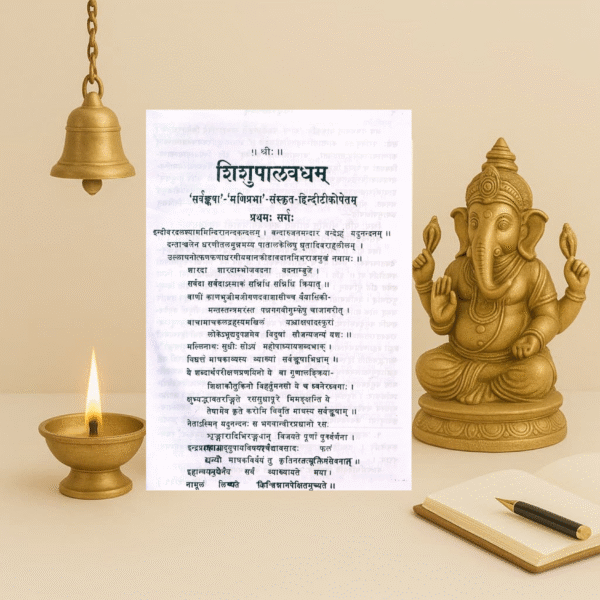 ॥ श्रीः ॥
शिशुपालवधम्
'सर्वङ्कषा'-'मणिप्रभा'-संस्कृत-हिन्दीटीकोपेतम्
प्रथमः सर्गः
इन्दीवरदलश्याममिन्दिरानन्दकन्दलम् । वन्दारुजनमन्दारं वन्देऽहं यदुनन्दनम् ॥
दन्ताञ्चलेन धरणीतलमुन्नमय्य पातालकेलिषु धृतादिवराहलीलम् ।
उल्लाघनोत्फणफणाधरगीयमानक्रीडावदानमिभराजमुखं नमामः ॥
शारदा शारदाम्भोजवदना वदनाम्बुजे ।
सर्वदा सर्वदाऽस्माकं सन्निधिं सन्निधिं क्रियात् ॥
वाणीं काणभुजीमजीगणदवाशासीच्च वैयासिकी-
मन्तस्तन्त्रमरंस्त पन्नगगवीगुम्फेषु चाजागरीत् ।
वाचामाचकलद्रहस्यमखिलं यश्चाक्षपादस्फुरां
लोकेऽभूद्यदुपज्ञमेव विदुषां सौजन्यजन्यं यशः ॥
मल्लिनाथः सुधीः सोऽयं महोपाध्यायशब्दभाक् ।
विधत्ते माघकाव्यस्य व्याख्यां सर्वङ्कषाभिधाम् ॥
ये शब्दार्थपरीक्षणप्रणयिनो ये वा गुणालङ्क्रिया-
शिक्षाकौतुकिनो विहर्तुमनसो ये च ध्वनेरध्वगाः ।
क्षुभ्यद्भावतरङ्गिते रससुधापूरे मिमङ्क्षन्ति ये
तेषामेव कृते करोमि विवृतिं माघस्य सर्वङ्कषाम् ॥
नेताऽस्मिन् यदुनन्दनः स भगवान्वीरप्रधानो रसः
शृङ्गारादिभिरङ्गवान् विजयते पूर्णा पुनर्वर्णना ।
धन्यो माघकविर्वयं तु कृतिनस्तत्सूक्तिसंसेवनात् ॥
इहान्वयमुखेनैव सर्वं व्याख्यायते मया ।
नामूलं लिख्यते किञ्चिन्नानपेक्षितमुच्यते ॥